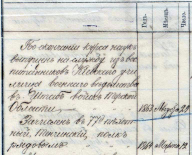 Годъ.
Мѣсяцъ.
Число.
По окончаніи курса наукъ
выпущенъ на службу изъ вос
питанниковъ Кіевскаго учи
лища военнаго вѣдомства
въ Штабъ войскъ Терской
Области
1863 29
Зачисленъ въ 77й пѣхот
ный, Тенгинскій, полкъ
рядовымъ
1864 Марта